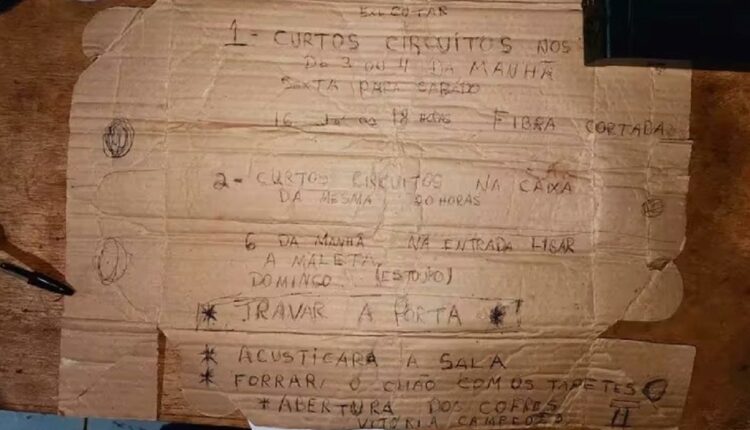 EXECUTAR
1 - CURTOS CIRCUITOS NOS
DA 3 OU 4 DA MANHÃ
SEXTA PARA SABADO
16 ás 18 HORAS FIBRA CORTADA
2 - CURTOS CIRCUITOS NA CAIXA
DA MESMA 20 HORAS
6 DA MANHÃ NA ENTRADA LIGAR
A MALETA
DOMINGO (ESTOJO)
* TRAVAR A PORTA *
* ACUSTICARA A SALA
* FORRAR O CHÃO COM OS TAPETES
* ABERTURA DOS COFRES
VITÓRIA